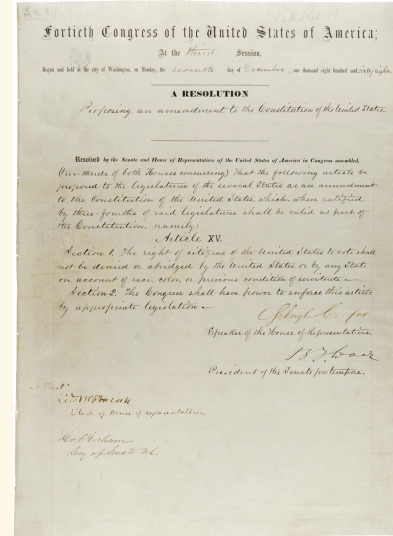 Fortieth Congress of the United States of America;
At the third Session,
Begun and held at the city of Washington, on Monday, the seventh day of December, one thousand eight hundred and sixty-eight.
A RESOLUTION
Proposing an amendment to the Constitution of the United States.
Resolved by the Senate and House of Representatives of the United States of America in Congress assembled,
(two-thirds of both Houses concurring) That the following article be
proposed to the legislatures of the several States as an amendment
to the Constitution of the United States, which, when ratified
by three-fourths of said legislatures shall be valid as part of
the Constitution, namely:
Article XV.
Section 1. The right of citizens of the United States to vote shall
not be denied or abridged by the United States or by any State
on account of race, color, or previous condition of servitude—
Section 2. The Congress shall have power to enforce this article
by appropriate legislation—
Speaker of the House of Representatives
B. F. Wade
President of the Senate pro tempore.
Attest:
Clerk of House of Representatives.
Geo. C. Gorham
Secy of Senate U.S.